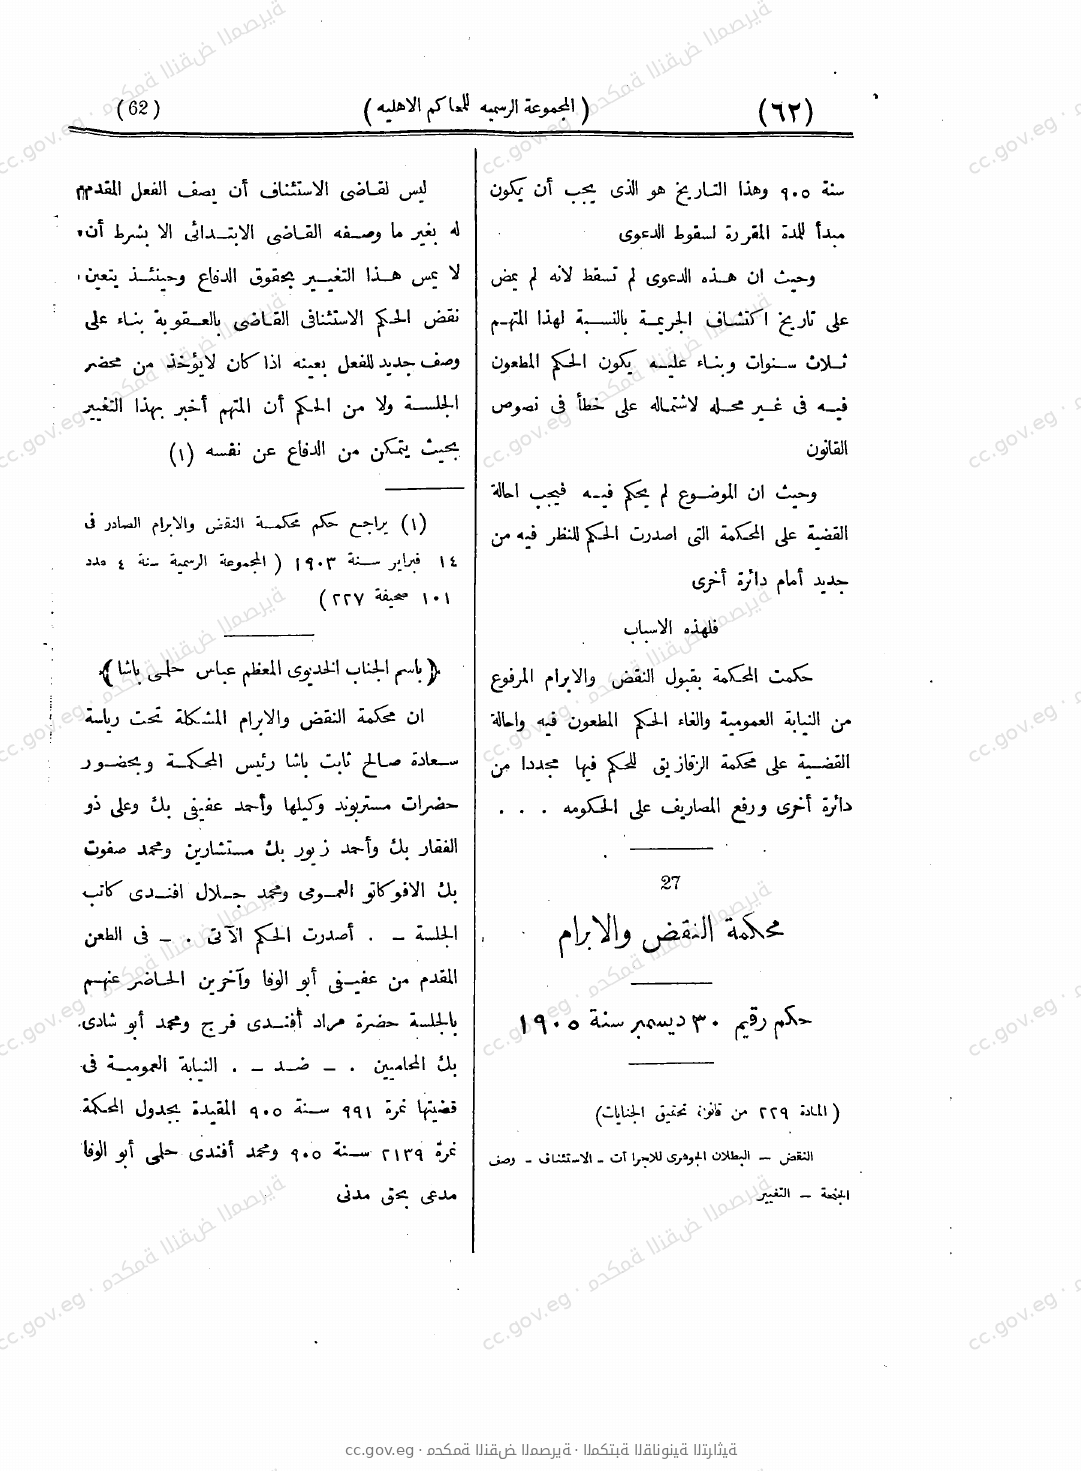 (٦٢) (المجموعة الرسميه للمحاكم الاهليه) (62)
سنة ٩٠٥ وهذا التاريخ هو الذى يجب أن يكون
مبدأ للمدة المقررة لسقوط الدعوى
وحيث ان هذه الدعوى لم تسقط لانه لم يمض
على تاريخ اكتشاف الجريمة بالنسبة لهذا المتهم
ثلاث سنوات وبناء عليه يكون الحكم المطعون
فيه فى غير محله لاشتماله على خطأ فى نصوص
القانون
وحيث ان الموضوع لم يحكم فيه فيجب احالة
القضية على المحكمة التى اصدرت الحكم للنظر فيه من
جديد أمام دائرة أخرى
فلهذه الاسباب
حكمت المحكمة بقبول النقض والابرام المرفوع
من النيابة العمومية والغاء الحكم المطعون فيه واحالة
القضية على محكمة الزقازيق للحكم فيها مجددا من
دائرة أخرى ورفع المصاريف على الحكومه . . .
27
محكمة النقض والابرام
حكم رقيم ٣٠ ديسمبر سنة ١٩٠٥
(المادة ٢٢٩ من قانون تحقيق الجنايات)
النقض – البطلان الجوهرى للاجراآت – الاستئناف – وصف
الجنحة – التغيير
ليس لقاضى الاستئناف أن يصف الفعل المقدم
له بغير ما وصفه القاضى الابتدائى الا بشرط أن
لا يمس هذا التغيير بحقوق الدفاع وحينئذ يتعين
نقض الحكم الاستئنافى القاضى بالعقوبة بناء على
وصف جديد للفعل بعينه اذا كان لايؤخذ من محضر
الجلسة ولا من الحكم أن المتهم أخبر بهذا التغيير
بحيث يتمكن من الدفاع عن نفسه (١)
(١) يراجع حكم محكمة النقض والابرام الصادر فى
١٤ فبراير سنة ١٩٠٣ (المجموعة الرسمية سنة ٤ عدد
١٠١ صحيفة ٢٢٧)
﴿باسم الجناب الخديوى المعظم عباس حلمى باشا﴾
ان محكمة النقض والابرام المشكلة تحت رياسة
سعادة صالح ثابت باشا رئيس المحكمة وبحضور
حضرات مستربوند وكيلها وأحمد عفيفى بك وعلى ذو
الفقار بك وأحمد زيور بك مستشارين ومحمد صفوت
بك الافوكاتو العمومى ومحمد جلال افندى كاتب
الجلسة – . أصدرت الحكم الآتى . – فى الطعن
المقدم من عفيفى أبو الوفا وآخرين الحاضر عنهم
بالجلسة حضرة مراد أفندى فرج ومحمد أبو شادى
بك المحاميين . – ضد – . النيابة العمومية فى
قضيتها نمرة ٩٩١ سنة ٩٠٥ المقيدة بجدول المحكمة
نمرة ٢١٣٩ سنة ٩٠٥ ومحمد أفندى حلمى أبو الوفا
مدعى بحق مدنى
cc.gov.eg · محكمة النقض المصرية · المكتبة القانونية التراثية